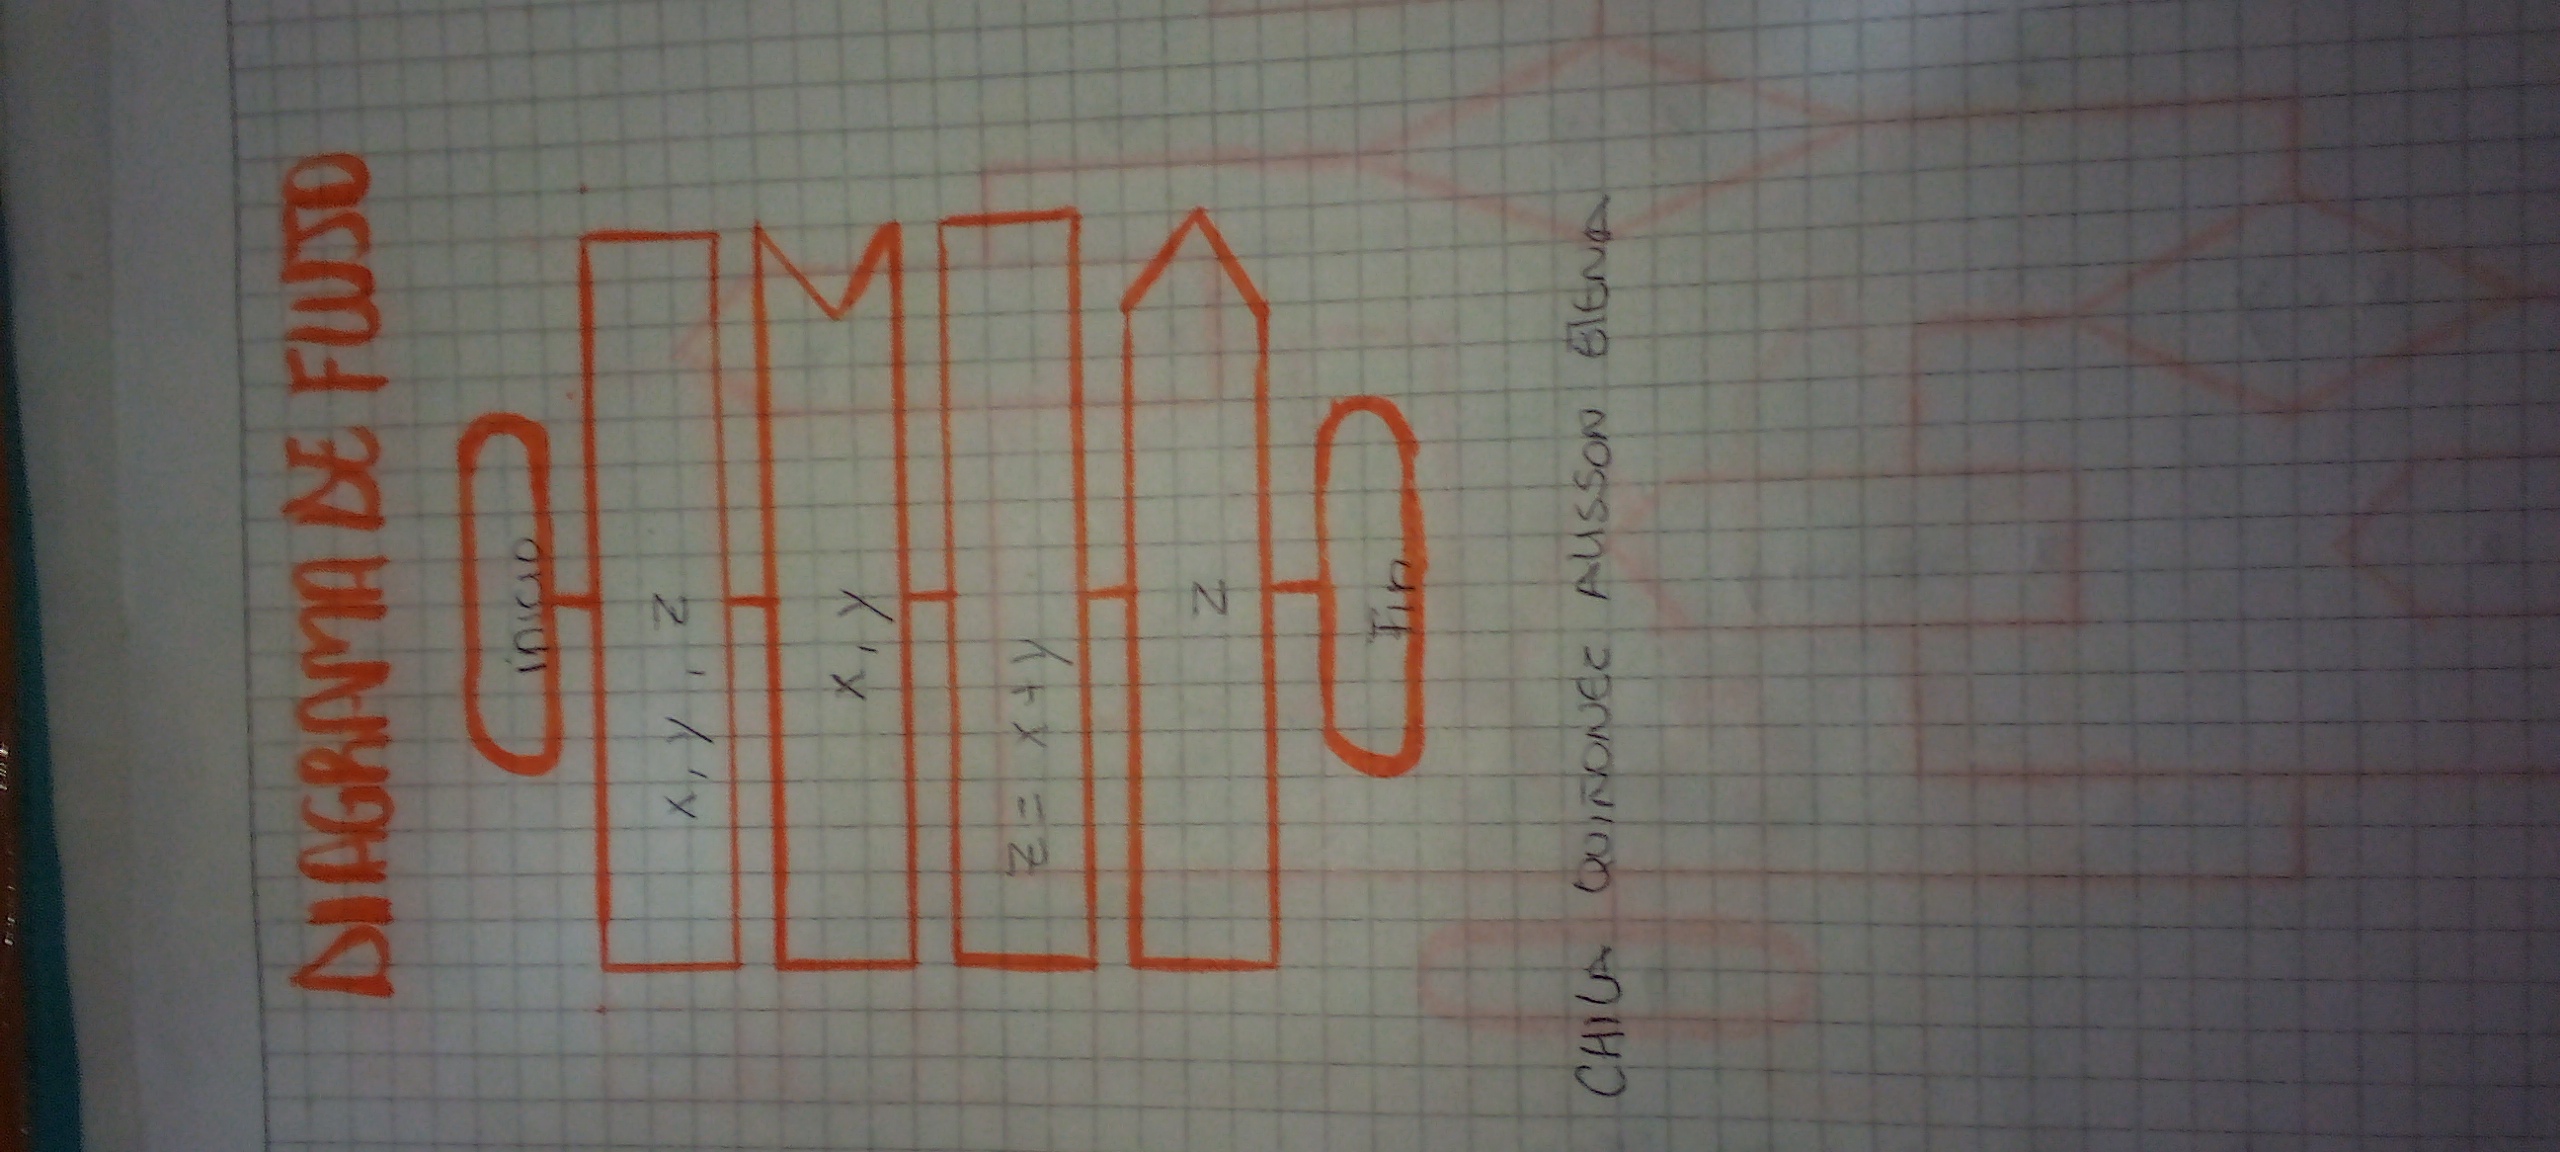 DIAGRAMA DE FLUJO
inicio
x, y, z
x, y
z = x + y
z
Fin
CHILA QUIÑONEZ ALISSON ELENA